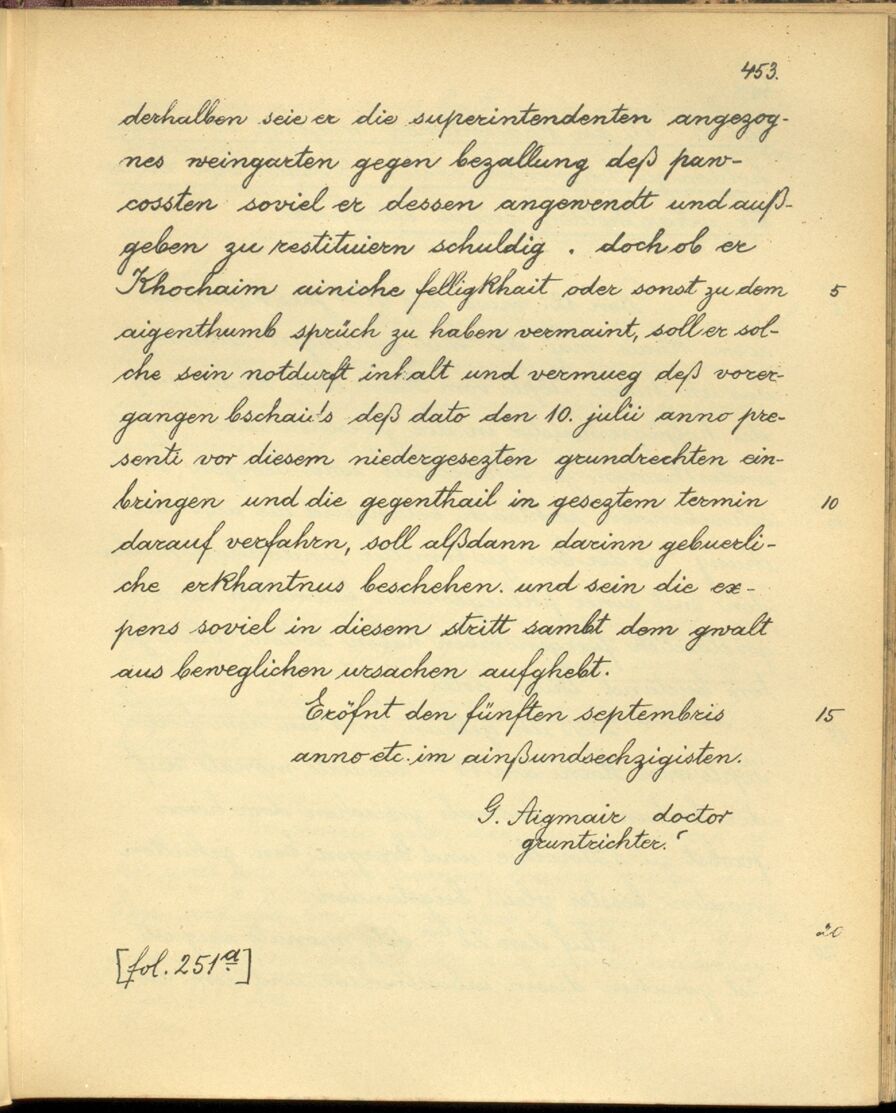 453.
derhalben seie er die superintendenten angezog-
nes weingarten gegen bezallung deß paw-
cossten soviel er dessen angewendt und auß-
geben zu restituiern schuldig. doch ob er
Khochaim ainiche felligkhait oder sonst zu dem 5
aigenthumb sprüch zu haben vermaint, soll er sol-
che sein notdurft inhalt und vermueg deß vorer-
gangen bschaids deß dato den 10. julii anno pre-
senti vor diesem niedergesezten grundrechten ein-
bringen und die gegenthail in geseztem termin 10
darauf verfahrn, soll alßdann darinn gebuerli-
che erkhantnus beschehen. und sein die ex-
pens soviel in diesem stritt sambt dem gwalt
aus beweglichen ursachen aufghebt.
Eröfnt den fünften septembris 15
anno etc. im ainßundsechzigisten.
G. Aigmair doctor
gruntrichter.'
20
[fol. 251a]